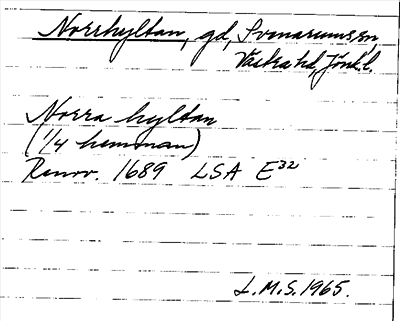 Norrhyltan, gd, Svenarums sn
Västra hd, Jönk. l.
Norra hyltan
(1/4 hemman)
Renov. 1689 LSA E32
L.M.S. 1965.